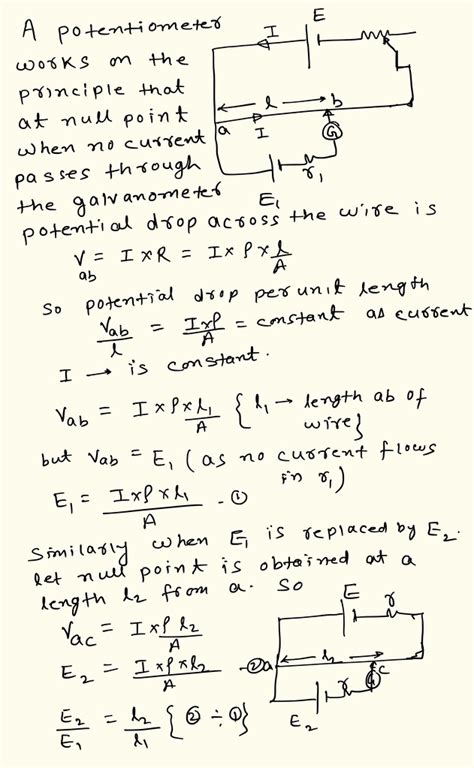 A potentiometer
works on the
principle that
at null point
when no current
passes through
the galvanometer
E
I
l
a
I
b
G
r₁
E₁
potential drop across the wire is
V_ab = I×R = I×ρ×l/A
So potential drop per unit length
V_ab/l = I×ρ/A = constant as current
I → is constant.
V_ab = I×ρ×l₁/A {l₁ → length ab of
wire}
but V_ab = E₁ (as no current flows
in r₁)
E₁ = I×ρ×l₁/A -①
Similarly when E₁ is replaced by E₂.
let null point is obtained at a
length l₂ from a. So
V_ac = I×ρ l₂/A
E₂ = I×ρ×l₂/A -②
E₂/E₁ = l₂/l₁ {② ÷ ①}
E
r
a
l₂
c
G
r
E₂